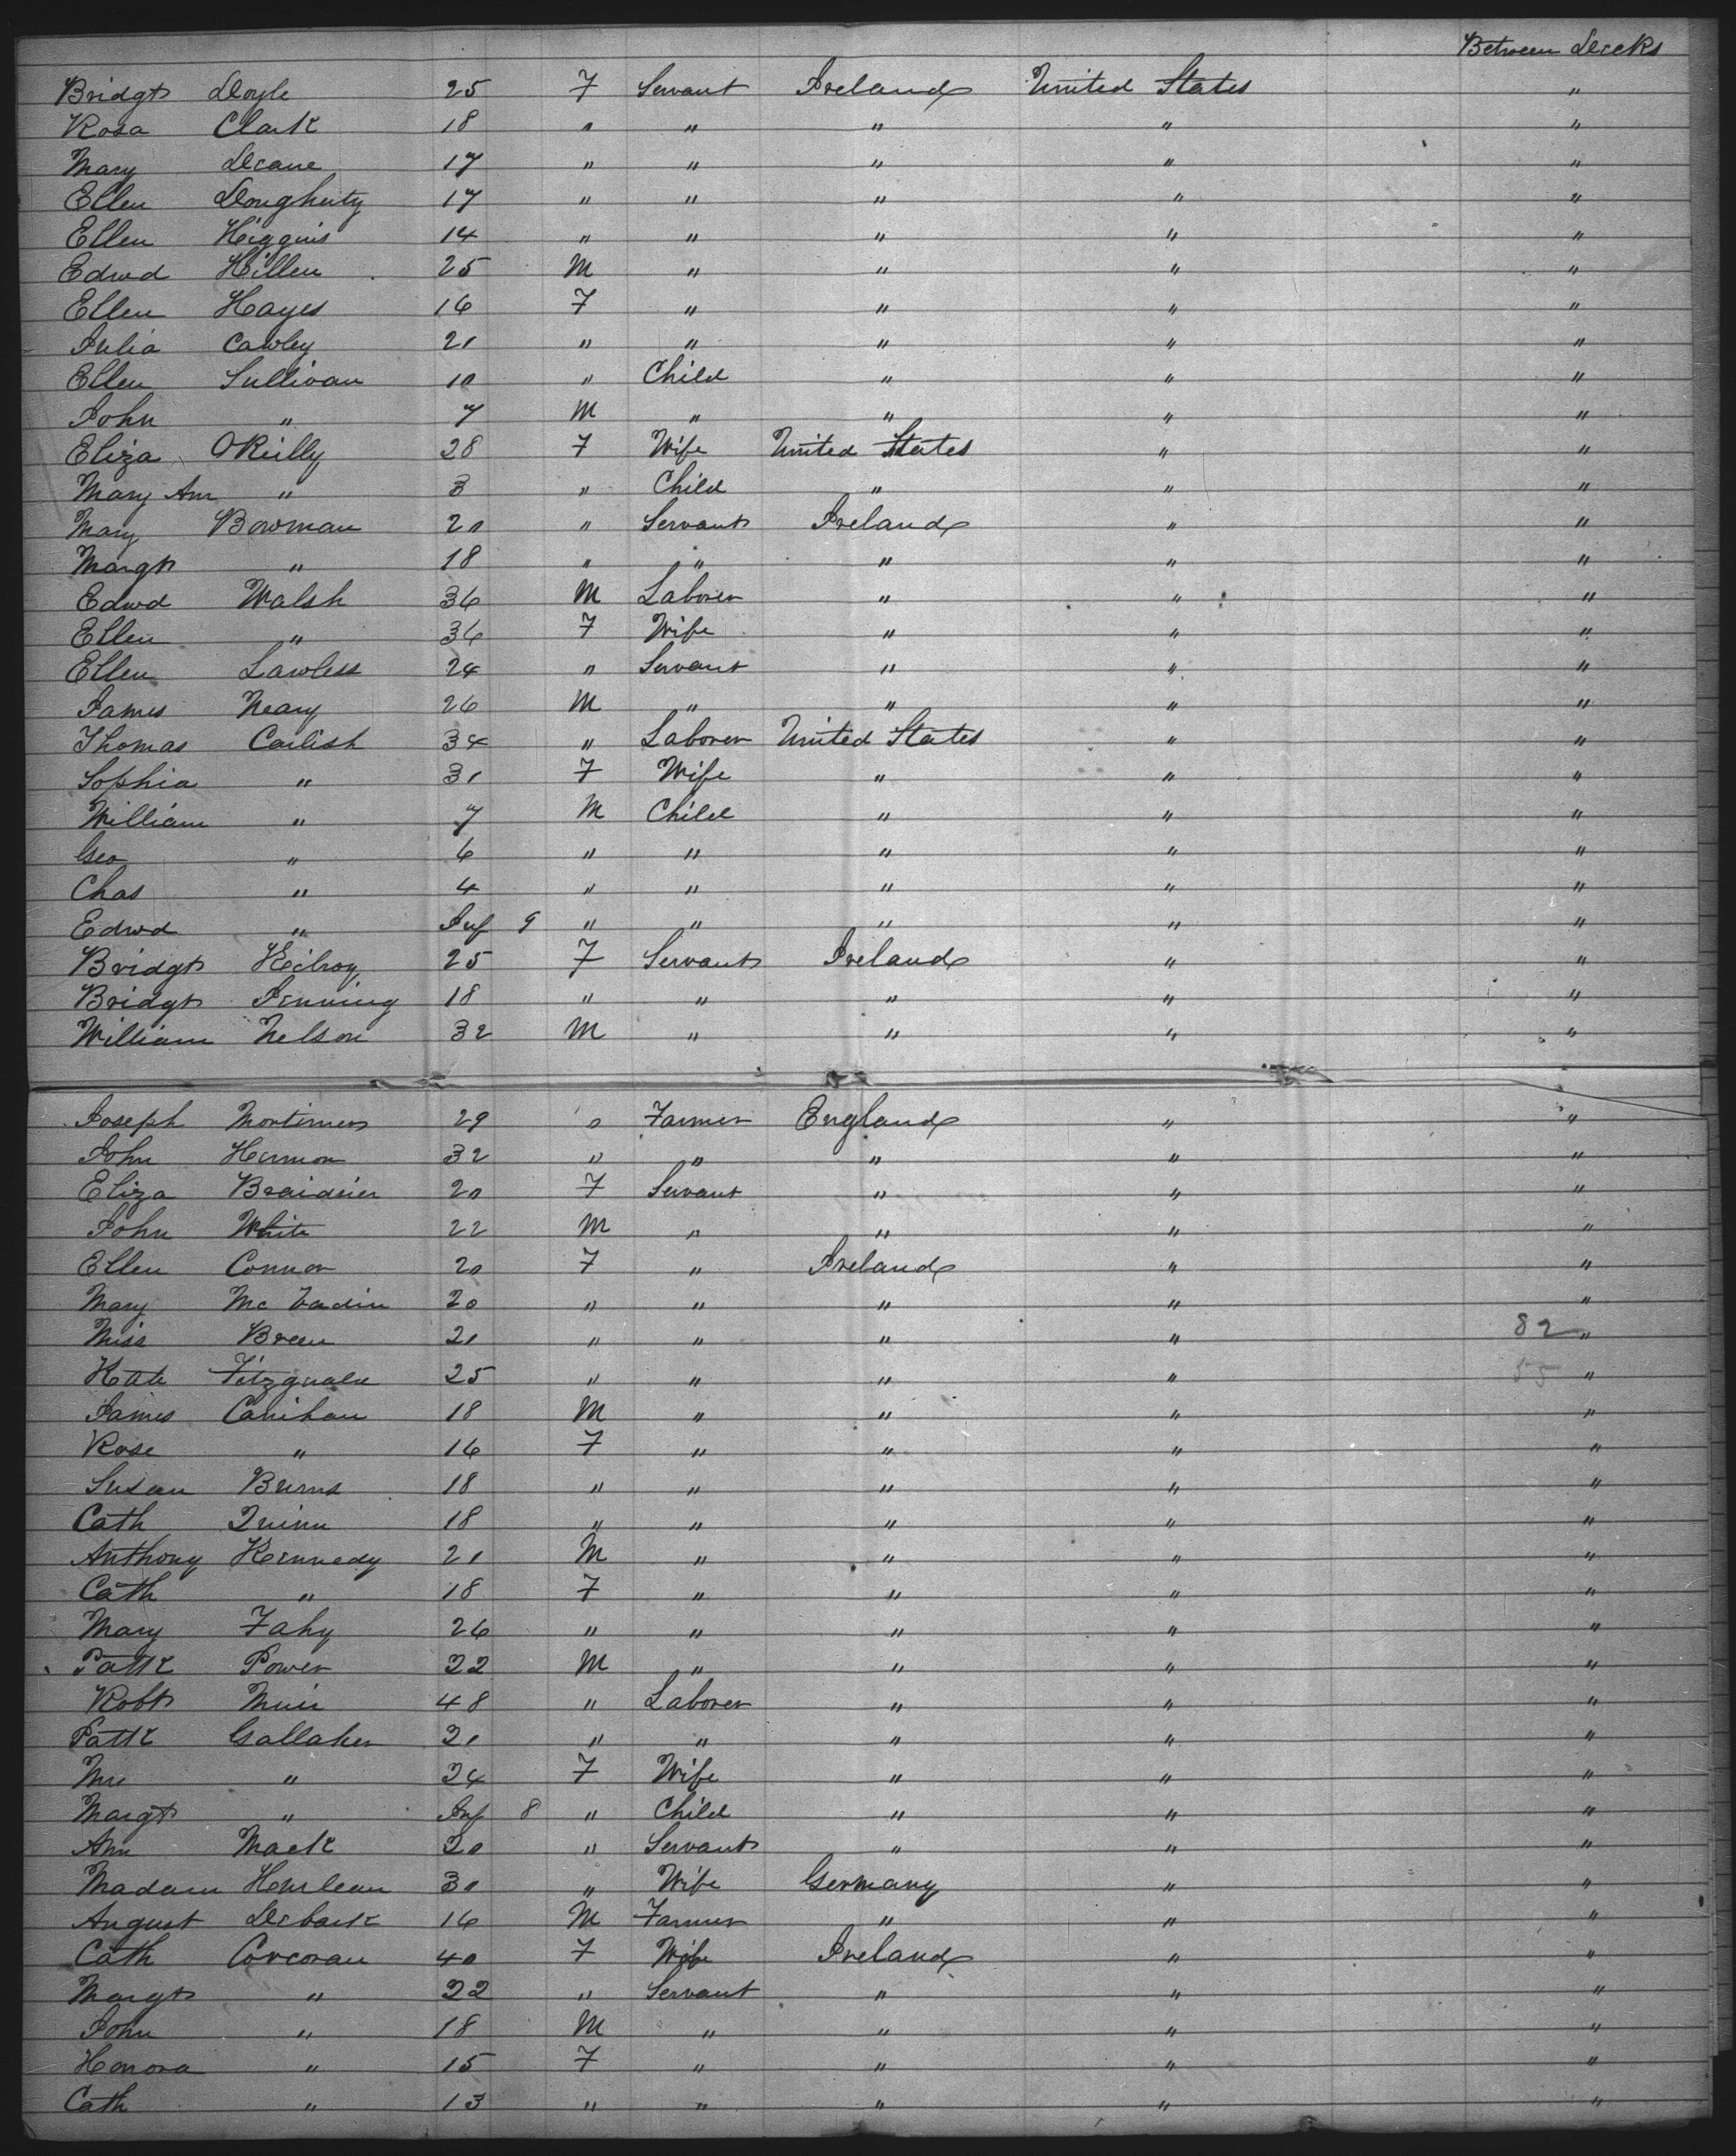 Between Decks
Bridgt Doyle 25 F Servant Ireland United States "
Rosa Clark 18 " " " " "
Mary Deane 17 " " " " "
Ellen Dougherty 17 " " " " "
Ellen Higgins 14 " " " " "
Edwd Hillen 25 M " " " "
Ellen Hayes 16 F " " " "
Julia Cawley 21 " " " " "
Ellen Sullivan 10 " Child " " "
John " 7 M " " " "
Eliza OReilly 28 F Wife United States " "
Mary Ann " 3 " Child " " "
Mary Bowman 20 " Servant Ireland " "
Margt " 18 " " " " "
Edwd Walsh 36 M Laborer " " "
Ellen " 36 F Wife " " "
Ellen Lawless 24 " Servant " " "
James Neary 26 M " " " "
Thomas Carlish 34 " Laborer United States " "
Sophia " 31 F Wife " " "
William " 7 M Child " " "
Geo " 6 " " " " "
Chas " 4 " " " " "
Edwd " Inf 9 " " " " "
Bridgt Kilroy 25 F Servant Ireland " "
Bridgt Jenning 18 " " " " "
William Nelson 32 M " " " "
Joseph Mortimer 29 " Farmer England " "
John Hermon 32 " " " " "
Eliza 20 F Servant " " "
John White 22 M " " " "
Ellen Connor 20 F " Ireland " "
Mary Mc 20 " " " " "
Miss Breen 21 " " " " 82 "
Kate Fitzgerald 25 " " " " "
James Canihan 18 M " " " "
Rose " 16 F " " " "
Susan Burns 18 " " " " "
Cath Quinn 18 " " " " "
Anthony Kennedy 21 M " " " "
Cath " 18 F " " " "
Mary Fahy 26 " " " " "
Patk Power 22 M " " " "
Robt Muir 48 " Laborer " " "
Patk Gallaher 21 " " " " "
Mrs " 24 F Wife " " "
Margt " Inf 8 " Child " " "
Ann Mack 20 " Servant " " "
Madam 30 " Wife Germany " "
August 16 M Farmer " " "
Cath Corcoran 40 F Wife Ireland " "
Margt " 22 " Servant " " "
John " 18 M " " " "
Honora " 15 F " " " "
Cath " 13 " " " " "